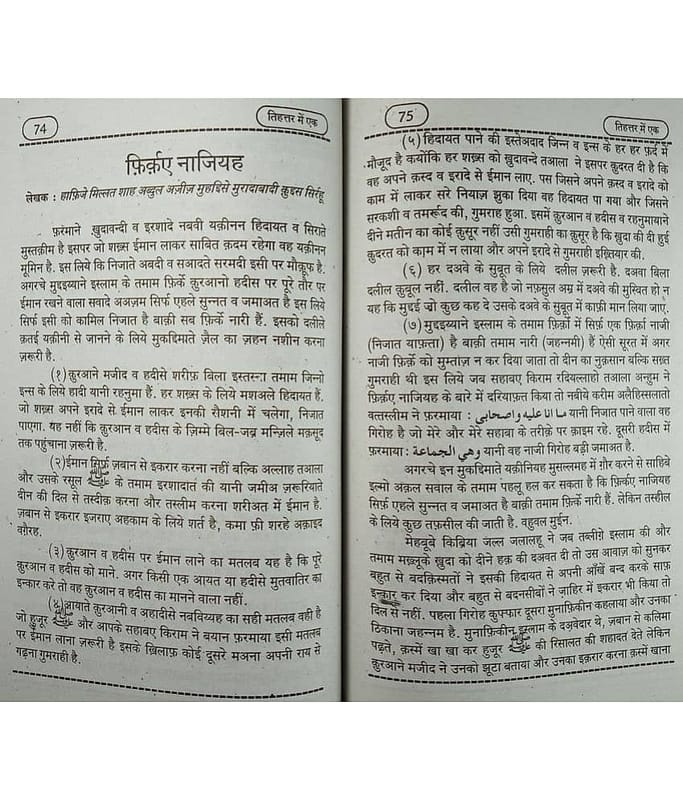 74
तिहत्तर में एक
फ़िर्क़ए नाजियह
लेखक : हाफ़िजे मिल्लत शाह अब्दुल अज़ीज़ मुहद्दिसे मुरादाबादी क़ुद्दस सिर्रहू
फ़रमाने ख़ुदावन्दी व इरशादे नबवी यक़ीनन हिदायत व सिराते
मुस्तक़ीम है इसपर जो शख़्स ईमान लाकर साबित क़दम रहेगा वह यक़ीनन
मूमिन है. इस लिये कि निजाते अबदी व सआदते सरमदी इसी पर मौक़ूफ़ है.
अगरचे मुद्दइय्याने इस्लाम के तमाम फ़िर्के क़ुरआनो हदीस पर पूरे तौर पर
ईमान रखने वाला सवादे अअज़म सिर्फ़ एहले सुन्नत व जमाअत है इस लिये
सिर्फ़ इसी को कामिल निजात है बाक़ी सब फ़िर्के नारी हैं. इसको दलीले
क़तई यक़ीनी से जानने के लिये मुकद्दिमाते ज़ैल का ज़हन नशीन करना
ज़रूरी है.
(१) क़ुरआने मजीद व हदीसे शरीफ़ बिला इस्तस्ना तमाम जिन्नो
इन्स के लिये हादी यानी रहनुमा हैं. हर शख़्स के लिये मशअले हिदायत हैं.
जो शख़्स अपने इरादे से ईमान लाकर इनकी रौशनी में चलेगा, निजात
पाएगा. यह नहीं कि क़ुरआन व हदीस के ज़िम्मे बिल-जब्र मन्ज़िले मक़सूद
तक पहुंचाना ज़रूरी है.
(२) ईमान सिर्फ़ ज़बान से इकरार करना नहीं बल्कि अल्लाह तआला
और उसके रसूल ﷺ के तमाम इरशादात की यानी जमीअ ज़रूरियाते
दीन की दिल से तस्दीक़ करना और तस्लीम करना शरीअत में ईमान है.
ज़बान से इकरार इजराए अहकाम के लिये शर्त है, कमा फ़ी शरहे अक़ाइद
वग़ैरह.
(३) क़ुरआन व हदीस पर ईमान लाने का मतलब यह है कि पूरे
क़ुरआन व हदीस को माने. अगर किसी एक आयत या हदीसे मुतवातिर का
इन्कार करे तो वह क़ुरआन व हदीस का मानने वाला नहीं.
(४) आयाते क़ुरआनी व अहादीसे नबविय्यह का सही मतलब वही है
जो हुज़ूर ﷺ और आपके सहाबए किराम ने बयान फ़रमाया इसी मतलब
पर ईमान लाना ज़रूरी है इसके ख़िलाफ़ कोई दूसरे मअना अपनी राय से
गढ़ना गुमराही है.
75
तिहत्तर में एक
(५) हिदायत पाने की इस्तेअदाद जिन्न व इन्स के हर हर फ़र्द में
मौजूद है क्योंकि हर शख़्स को ख़ुदावन्दे तआला ने इसपर क़ुदरत दी है कि
वह अपने क़स्द व इरादे से ईमान लाए. पस जिसने अपने क़स्द व इरादे को
काम में लाकर सरे नियाज़ झुका दिया वह हिदायत पा गया और जिसने
सरकशी व तमर्रूद की, गुमराह हुआ. इसमें क़ुरआन व हदीस व रहनुमायाने
दीने मतीन का कोई क़ुसूर नहीं उसी गुमराही का क़ुसूर है कि ख़ुदा की दी हुई
क़ुदरत को काम में न लाया और अपने इरादे से गुमराही इख़्तियार की.
(६) हर दअवे के सुबूत के लिये दलील ज़रूरी है. दअवा बिला
दलील क़ुबूल नहीं. दलील वह है जो नफ़्सुल अम्र में दअवे की मुस्बित हो न
यह कि मुद्दई जो कुछ कह दे उसके दअवे के सुबूत में काफ़ी मान लिया जाए.
(७) मुद्दइय्याने इस्लाम के तमाम फ़िर्क़ों में सिर्फ़ एक फ़िर्क़ा नाजी
(निजात याफ़्ता) है बाक़ी तमाम नारी (जहन्नमी) हैं ऐसी सूरत में अगर
नाजी फ़िर्क़े को मुम्ताज़ न कर दिया जाता तो दीन का नुक़सान बल्कि सख़्त
गुमराही थी इस लिये जब सहाबए किराम रदियल्लाहो तआला अन्हुम ने
फ़िर्क़ए नाजियह के बारे में दरियाफ़्त किया तो नबीये करीम अलैहिस्सलातो
वत्तस्लीम ने फ़रमाया : ما انا عليه واصحابى यानी निजात पाने वाला वह
गिरोह है जो मेरे और मेरे सहाबा के तरीक़े पर क़ाइम रहे. दूसरी हदीस में
फ़रमाया: وهي الجماعة यानी वह नाजी गिरोह बड़ी जमाअत है.
अगरचे इन मुकद्दिमाते यक़ीनियह मुसल्लमह में ग़ौर करने से साहिबे
इल्मो अक़्ल सवाल के तमाम पहलू हल कर सकता है कि फ़िर्क़ए नाजियह
सिर्फ़ एहले सुन्नत व जमाअत है बाक़ी तमाम फ़िर्के नारी हैं. लेकिन तस्हील
के लिये कुछ तफ़सील की जाती है. वहुवल मुईन.
मेहबूबे किब्रिया जल्ल जलालहू ने जब तब्लीग़े इस्लाम की और
तमाम मख़्लूक़े ख़ुदा को दीने हक़ की दअवत दी तो उस आवाज़ को सुनकर
बहुत से बदक़िस्मतों ने इसकी हिदायत से अपनी आँखें बन्द करके साफ़
इन्कार कर दिया और बहुत से बदनसीबों ने ज़ाहिर में इकरार भी किया तो
दिल से नहीं. पहला गिरोह कुफ़्फ़ार दूसरा मुनाफ़िक़ीन कहलाया और उनका
ठिकाना जहन्नम है. मुनाफ़िक़ीन इस्लाम के दअवेदार थे, ज़बान से कलिमा
पढ़ते, क़स्में खा खा कर हुज़ूर ﷺ की रिसालत की शहादत देते लेकिन
क़ुरआने मजीद ने उनको झूटा बताया और उनका इक़रार करना क़स्में खाना